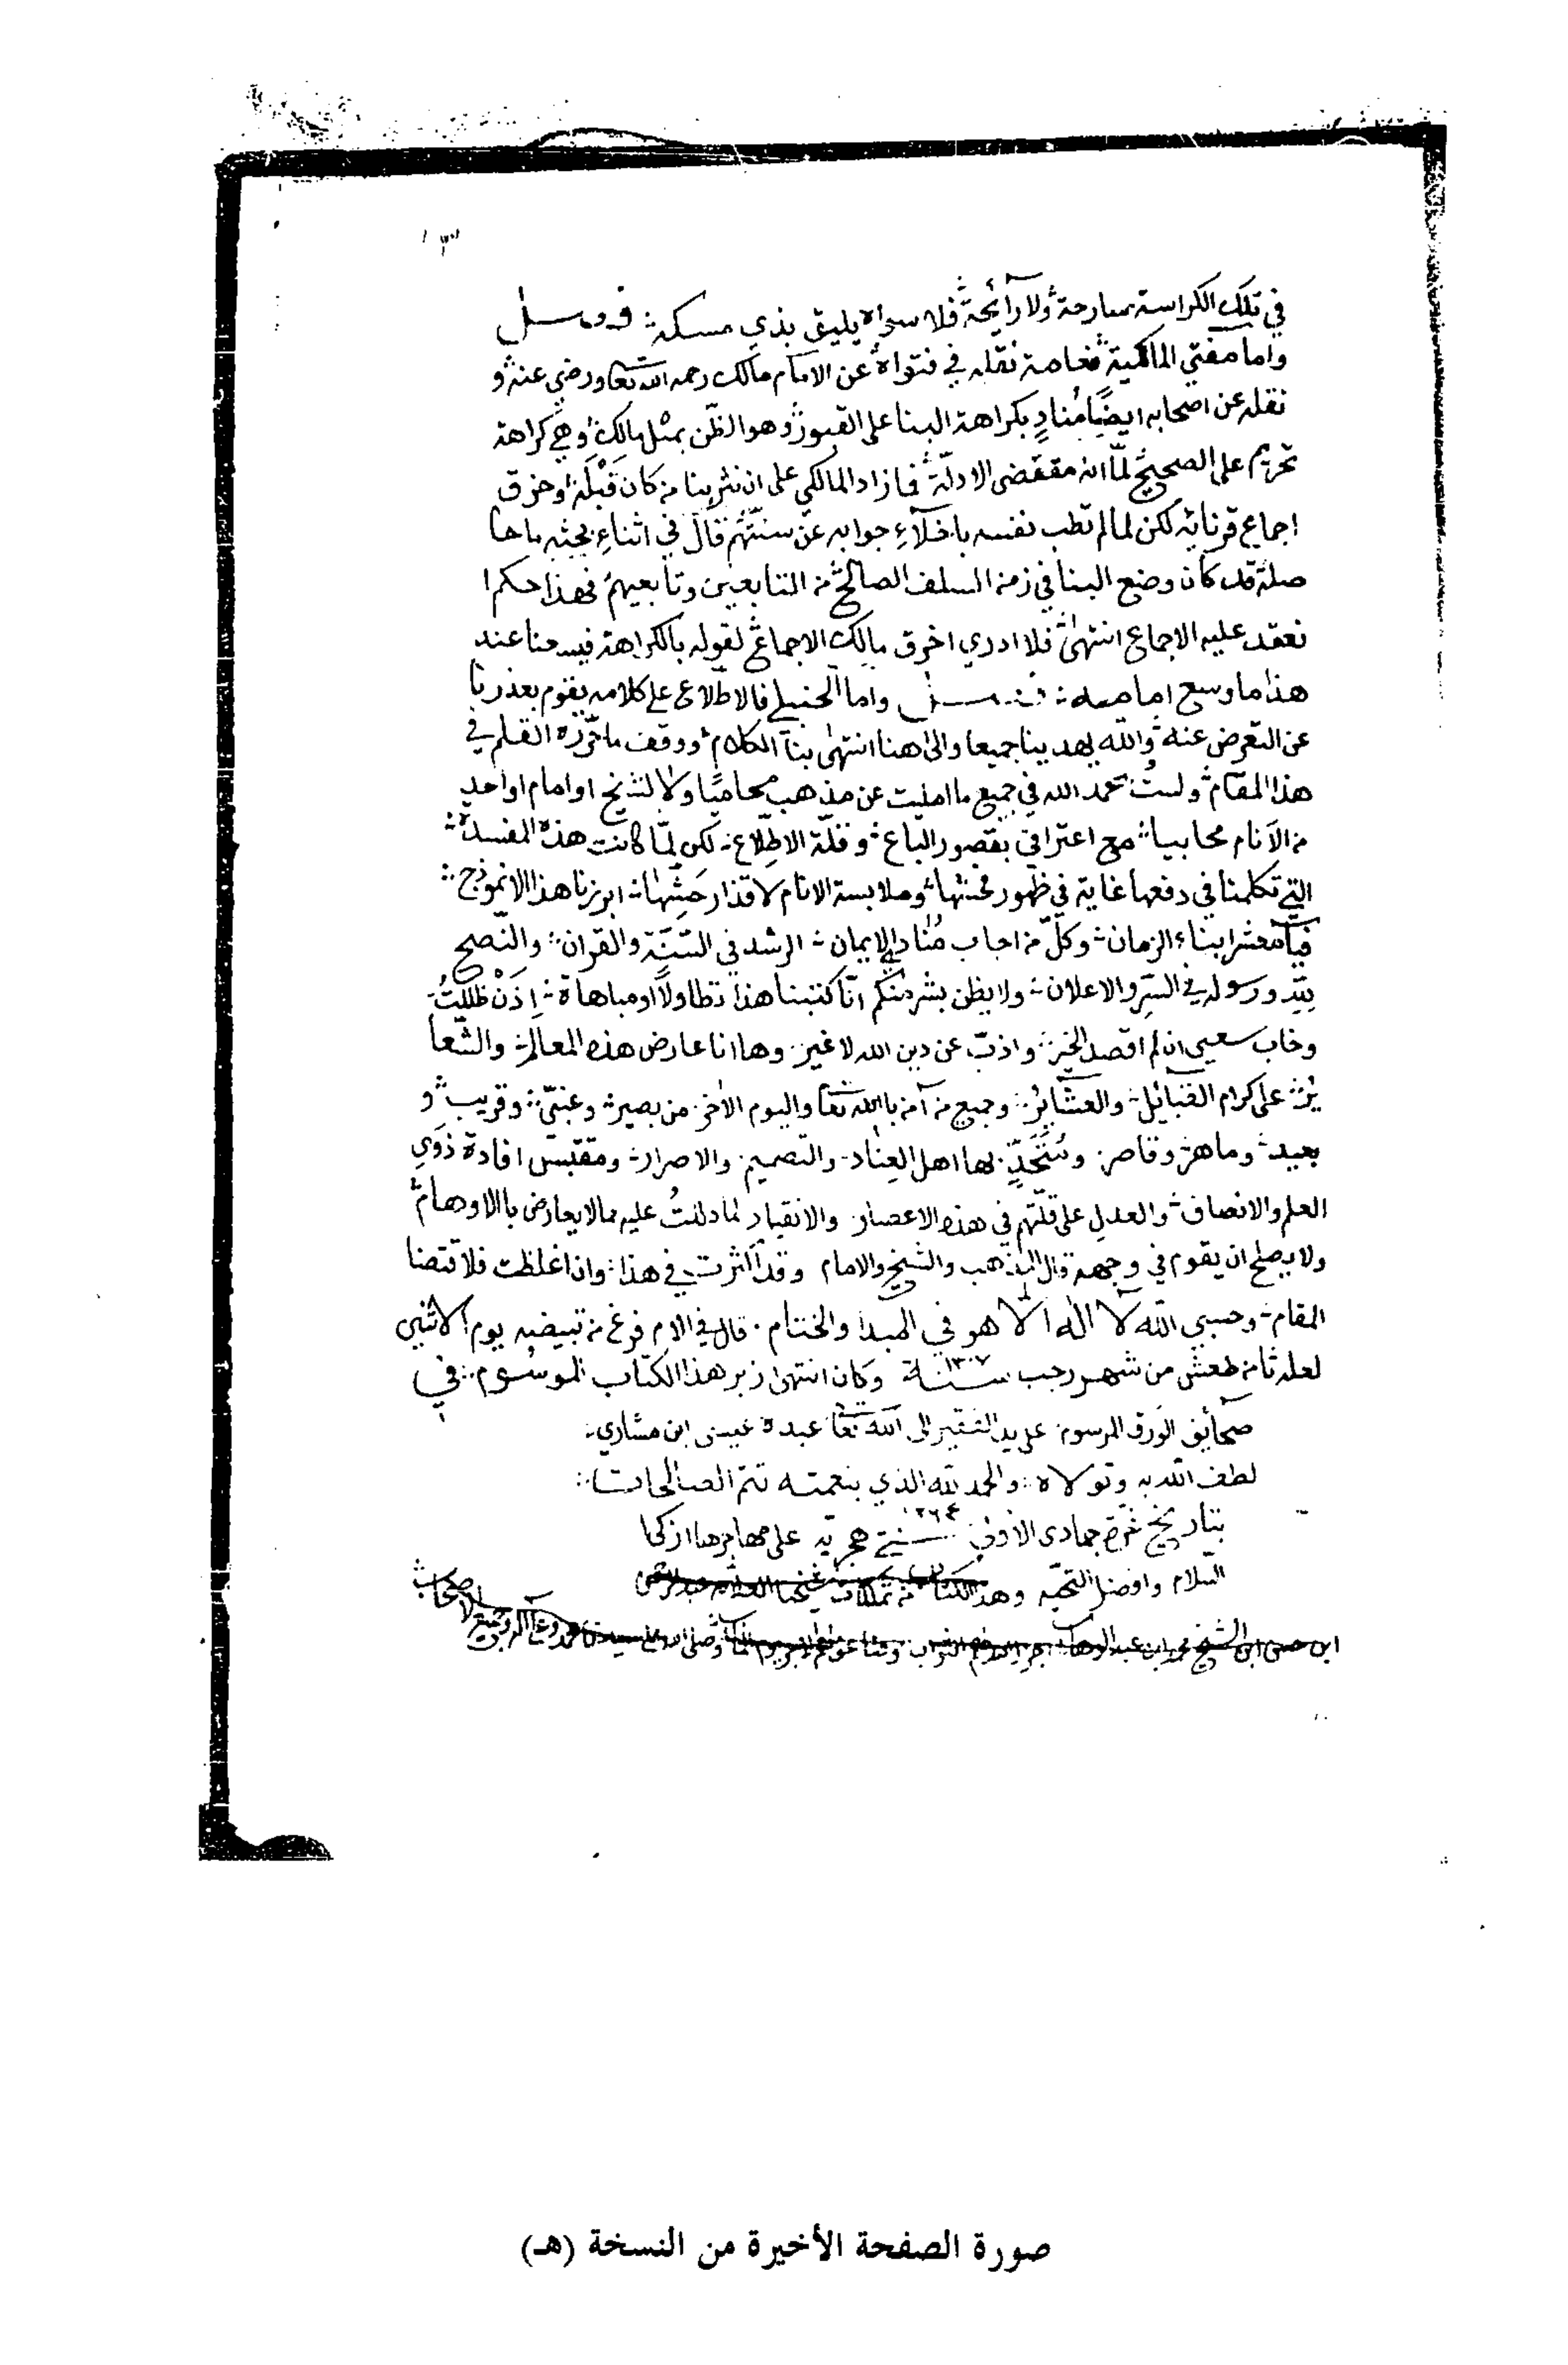 في تلك الكراسة سارحة ولا رائحة فلا سوالا يليق بذي مسكة فصل
واما مفتي المالكية فخاصة نقله في فتواه عن الامام مالك رحمه الله تعا ورضي عنه و
نقله عن اصحابه ايضًا مُنادٍ بكراهة البنا على القبور وهو الظن بمثل مالك وهي كراهة
تحريم على الصحيح لمّا انه مقتضى الادلّة فما زاد المالكي على ان نثر بنا من كان قَبْلَهُ وخرق
اجماع قرنائه لكن لما لم تطب نفسه باخلآءِ جوابه عن سنتهم قال في اثناءِ بحثه ما حا
صله قد كان وضع البنا في زمن السلف الصالح من التابعين وتابعيهم فهذا حكم ا
نعقد عليه الاجماع انتهى فلا ادري اخرق مالك الاجماع لقوله بالكراهة فيسعنا عند
هذا ما وسع امامه فصل واما الحنبلي فالاطّلاع على كلامه يقوم بعذرنا
عن التعرض عنه والله يهدينا جميعا والى هنا انتهى بنا الكلام ووقف ما حرّره القلم في
هذا المقام ولستُ بحمد الله في جميع ما امليت عن مذهب محاميًا ولا لشيخ او امام او احد
من الآنام محابيا مع اعترافي بقصور الباع وقلّة الاطّلاع لكن لمّا كانت هذه المفسدة
التي تكلمنا في دفعها غاية في ظهور فحشها وملابسة الانام لاقذار حَشِّها ابرزنا هذا الانموذج
فيآمعشر ابناء الزمان وكلّ من اجاب مُنادي الايمان الرشد في السّنّة والقران والنّصح
لِلّه ورسوله في السّر والاعلان ولا يظن بشر منكم انّا كتبنا هذا تطاولًا او مباهاة إذَنْ ظللتُ
وخاب سعيي ان لم اقصد الخير واذبّ عن دين الله لا غير وها انا عارض هذه المعالم والشّعا
ئر على كرام القبائل والعشائر وجميع من آمن بالله تعا واليوم الآخر من بصير وغبيّ وقريب و
بعيد وماهر وقاصر ومُتَحَدٍّ بها اهل العِناد والتصميم والاصرار ومقتبس افادة ذَوي
العلم والانصاف والعدلِ على قلّتهم في هذه الاعصار والانقياد لما دللتُ عليه مما لا يعارض باالاوهام
ولا يصلح ان يقوم في وجهه قال المذهب والشيخ والامام وقد اكثرت في هذا وان اغلظت فلاقتضا
المقام وحسبي اللّه لآ اله الّا هو في المبدا والختام . قال في الام فرغ من تبييضه يوم الاثنين
لعله ثامن طعش من شهر رجب سنة ١٢٠٧ وكان انتهى زبر هذا الكتاب الموسُوم في
صحآئف الورق المرسوم على يد الفقير الى اللّه تعا عبده عيسى ابن مشاري
لطف اللّه به وتولاه والحمد للّه الذي بنعمته تتمّ الصالحات
بتاريخ غرة جمادى الاولى سنة ١٢٦٤ هجريّه على مهاجرها ازكا
السّلام وافضل التحيّه وهذا الكتاب من تملكات شيخنا
ابن حسن ابن الشيخ محمد ابن عبد الوهاب
صورة الصفحة الأخيرة من النسخة (هـ)